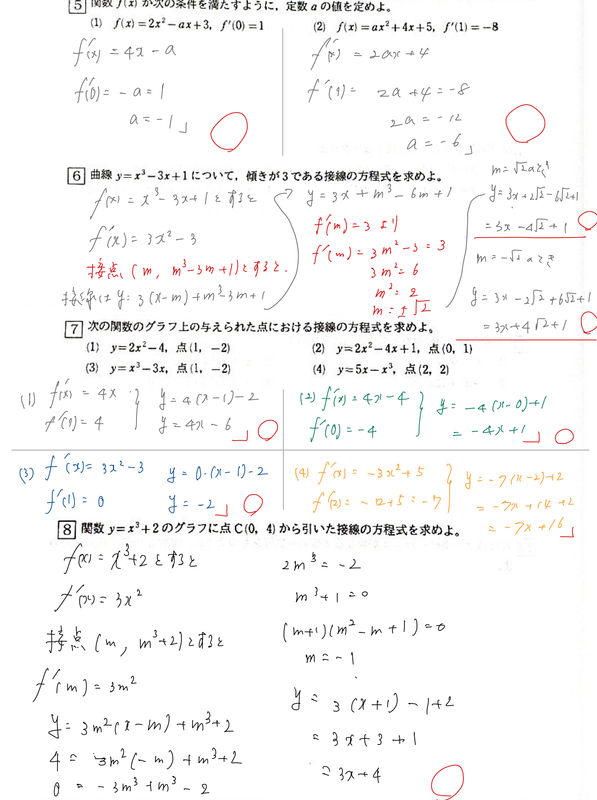 5 関数 f(x) が次の条件を満たすように，定数 a の値を定めよ。
(1) f(x)=2x²-ax+3, f'(0)=1
(2) f(x)=ax²+4x+5, f'(1)=-8
f'(x)=4x-a
f'(0)=-a=1
a=-1
f'(x)=2ax+4
f'(1)= 2a+4=-8
2a=-12
a=-6
6 曲線 y=x³-3x+1 について，傾きが3である接線の方程式を求めよ。
f(x)=x³-3x+1とすると
f'(x)=3x²-3
接点(m, m³-3m+1)とすると.
接線は y=3(x-m)+m³-3m+1
y=3x+m³-6m+1
f'(m)=3より
f'(m)=3m²-3=3
3m²=6
m²=2
m=±√2
m=√2のとき
y=3x+2√2-6√2+1
=3x-4√2+1
m=-√2のとき
y=3x-2√2+6√2+1
=3x+4√2+1
7 次の関数のグラフ上の与えられた点における接線の方程式を求めよ。
(1) y=2x²-4, 点(1, -2)
(2) y=2x²-4x+1, 点(0, 1)
(3) y=x³-3x, 点(1, -2)
(4) y=5x-x³, 点(2, 2)
(1) f'(x)=4x
f'(1)=4
y=4(x-1)-2
y=4x-6
(2) f'(x)=4x-4
f'(0)=-4
y=-4(x-0)+1
=-4x+1
(3) f'(x)=3x²-3
f'(1)=0
y=0・(x-1)-2
y=-2
(4) f'(x)=-3x²+5
f'(2)=-12+5=-7
y=-7(x-2)+2
=-7x+14+2
=-7x+16
8 関数 y=x³+2 のグラフに点 C(0, 4) から引いた接線の方程式を求めよ。
f(x)=x³+2とすると
f'(x)=3x²
接点(m, m³+2)とすると
f'(m)=3m²
y=3m²(x-m)+m³+2
4=3m²(-m)+m³+2
0=-3m³+m³-2
2m³=-2
m³+1=0
(m+1)(m²-m+1)=0
m=-1
y=3(x+1)-1+2
=3x+3+1
=3x+4